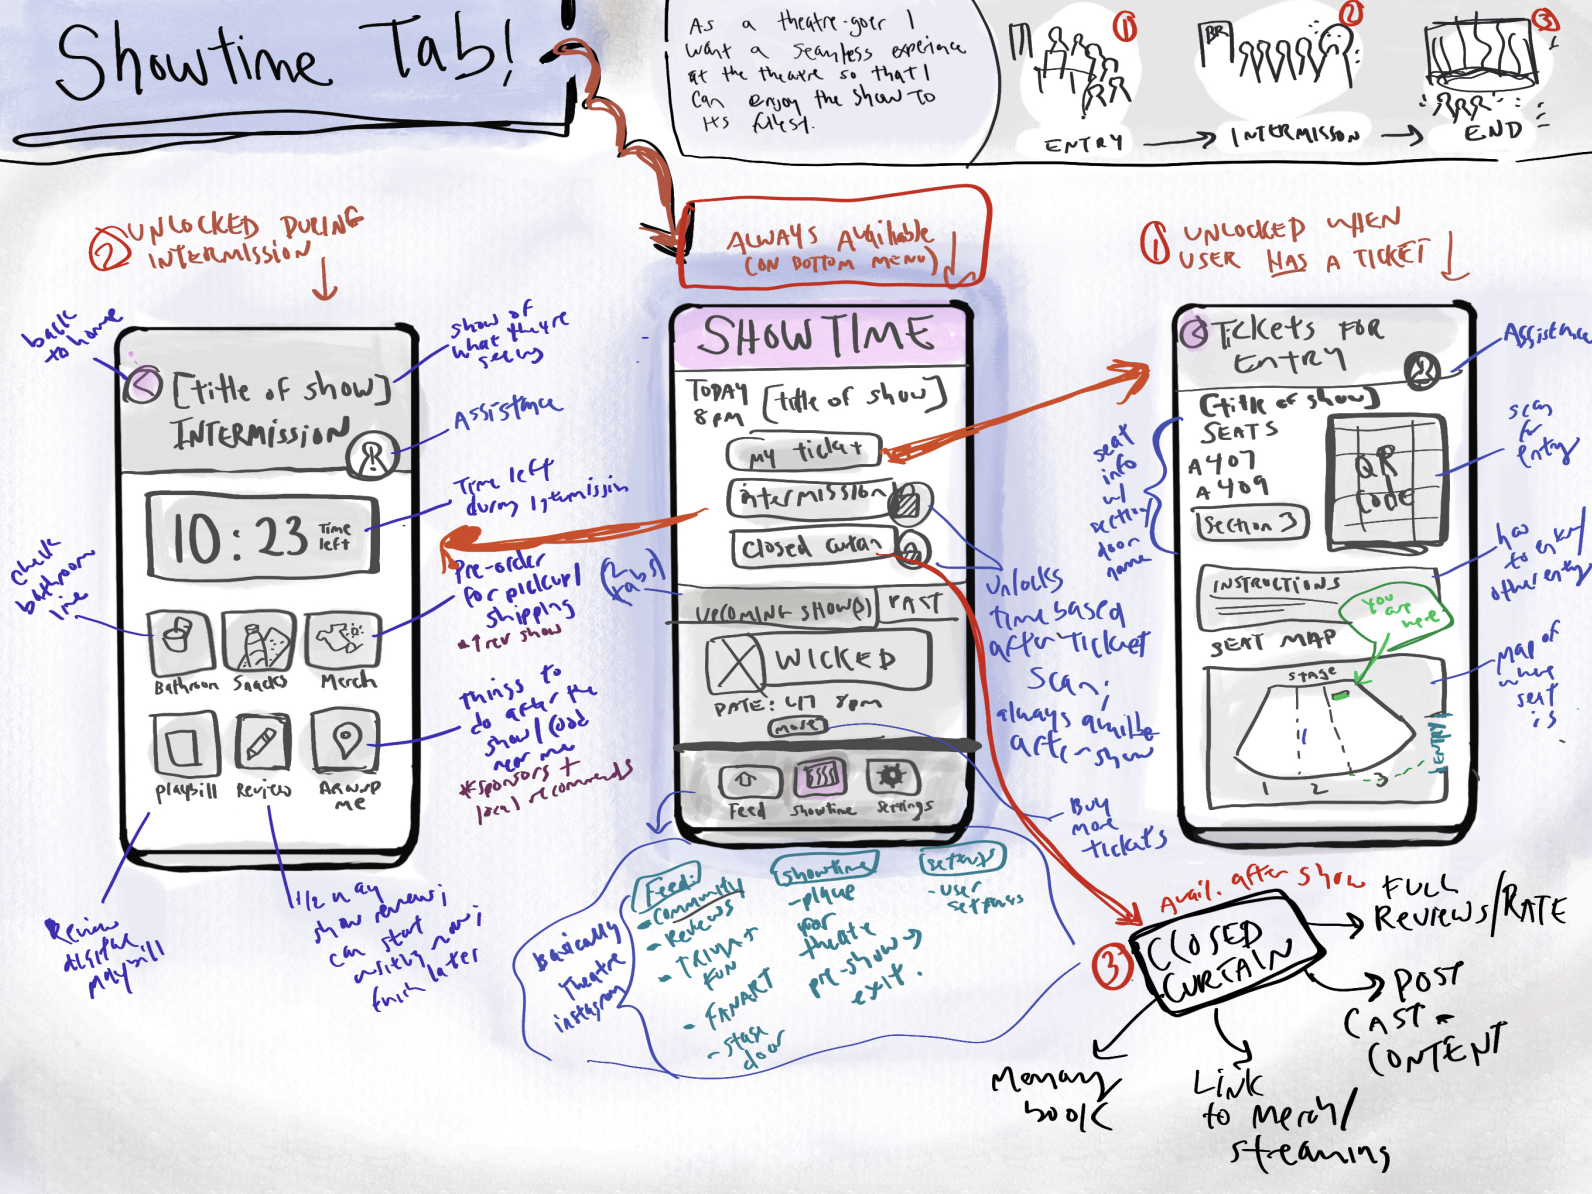 Showtime Tab!
As a theatre-goer I
want a seamless experience
at the theatre so that I
can enjoy the show to
its fullest.
1
ENTRY
2
BR
INTERMISSON
3
END
2 UNLOCKED DURING
INTERMISSION
ALWAYS AVAILABLE
(ON BOTTOM MENU)
1 UNLOCKED WHEN
USER HAS A TICKET
back
to home
show of
what theyre
seeing
Assistance
Time left
during intermission
check
bathroom
line
Pre-order
for pickup/
shipping
*Prev show
things to
do after the
show/food
near me
*sponsors +
local recommends
<
[title of show]
INTERMISSION
10:23
Time
left
Bathroom
Snacks
Merch
Playbill
Review
Around
me
Review
digital
playbill
1/2 way
show review;
can start
writing now;
finish later
SHOWTIME
TODAY
8 PM
[title of show]
my ticket
intermission
closed curtain
(tabs)
UPCOMING SHOW(S)
PAST
WICKED
DATE: 4/7 8pm
more
Feed
Showtime
Settings
unlocks
time based
after ticket
scan;
always available
after show
Buy
more
tickets
Basically
Theatre
instagram
Feed:
- Community
- Reviews
- TRIVIA +
FUN
- FANART
- stage
door
Showtime
- place
for
theatre
pre-show →
exit.
Settings
- user
settings
<
Tickets FOR
ENTRY
Assistance
[title of show]
SEATS
A407
A409
Section 3
QR
CODE
scan
for
entry
seat
info
w/
section
door
name
INSTRUCTIONS
how
to enter/
other entry
You
are
here
SEAT MAP
STAGE
1
2
3
ENTRY
map of
where
seat
is
Avail. after show
3
CLOSED
CURTAIN
FULL
REVIEWS/RATE
POST
CAST
CONTENT
Link
to merch/
streaming
Memory
book